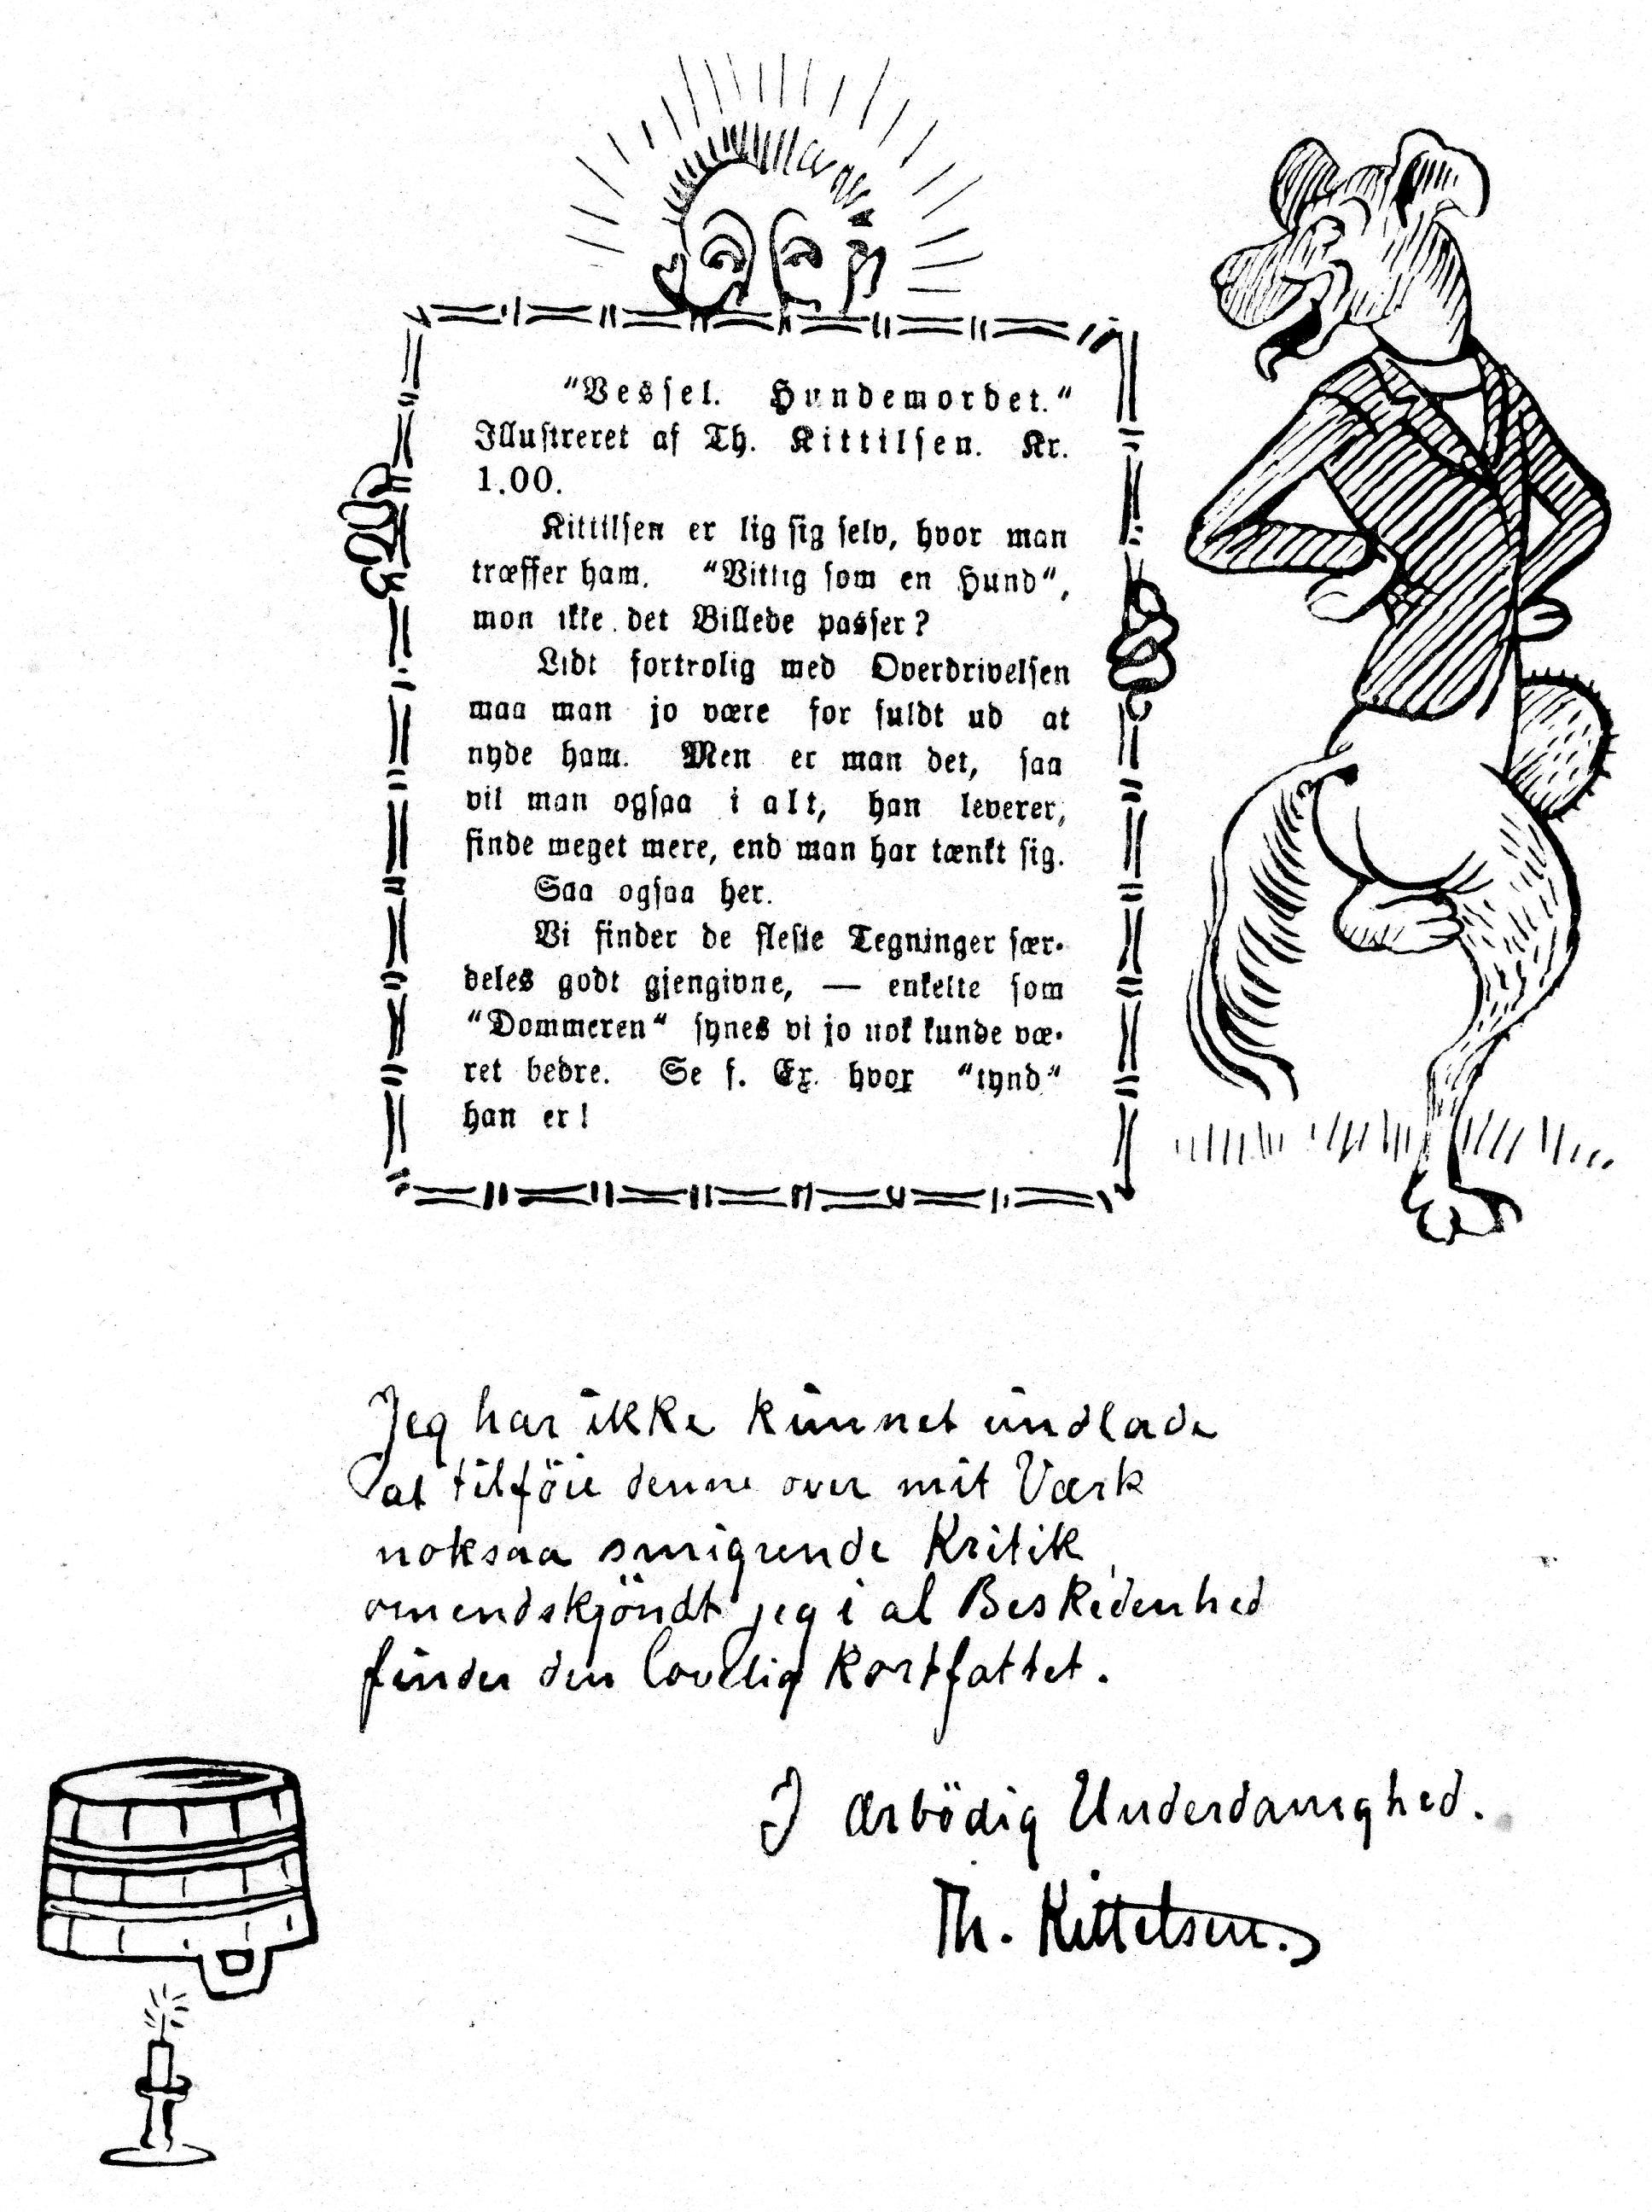 “Vessel. Hundemordet.“
Illustreret af Th. Kittilsen. Kr.
1.00.
Kittilsen er lig sig selv, hvor man
træffer ham. “Vittig som en Hund“,
mon ikke det Billede passer?
Lidt fortrolig med Overdrivelsen
maa man jo være for fuldt ud at
nyde ham. Men er man det, saa
vil man ogsaa i alt, han leverer,
finde meget mere, end man har tænkt sig.
Saa ogsaa her.
Vi finder de fleste Tegninger sær-
deles godt gjengivne, — enkelte som
“Dommeren“ synes vi jo nok kunde væ-
ret bedre. Se f. Ex. hvor “tynd“
han er!
Jeg har ikke kunnet undlade
at tilföie denne over mit Værk
noksaa smigrende Kritik,
omendskjöndt jeg i al Beskedenhed
finder den lovlig kortfattet.
I ærbödig Underdanighed.
Th. Kittelsen.